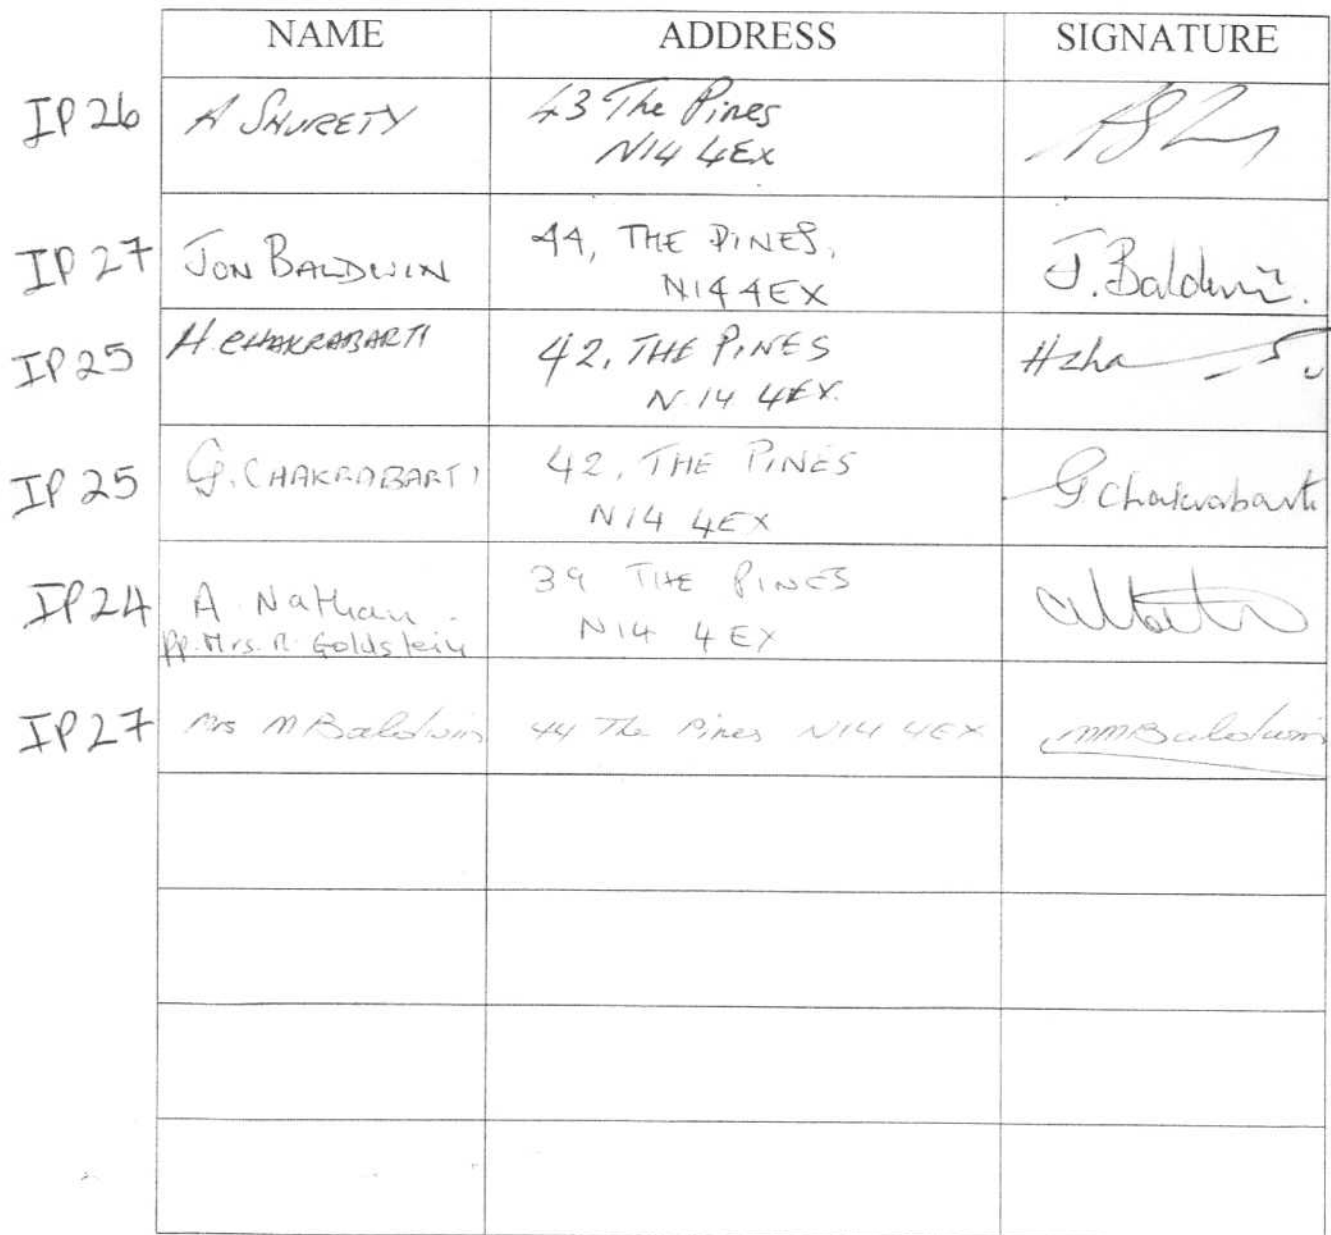 NAME ADDRESS SIGNATURE
IP 26 A SHURETY 43 The Pines
N14 4EX
IP 27 JON BALDWIN 44, THE PINES, J. Baldwin.
N14 4EX
IP 25 H. CHAKRABARTI 42, THE PINES
N.14 4EX.
IP 25 G. CHAKRABARTI 42, THE PINES G Chakrabarti
N14 4EX
IP 24 A. Nathan. 39 THE PINES
pp. Mrs. R. Goldstein N14 4EX
IP 27 Mrs M Baldwin 44 The Pines N14 4EX MMBaldwin